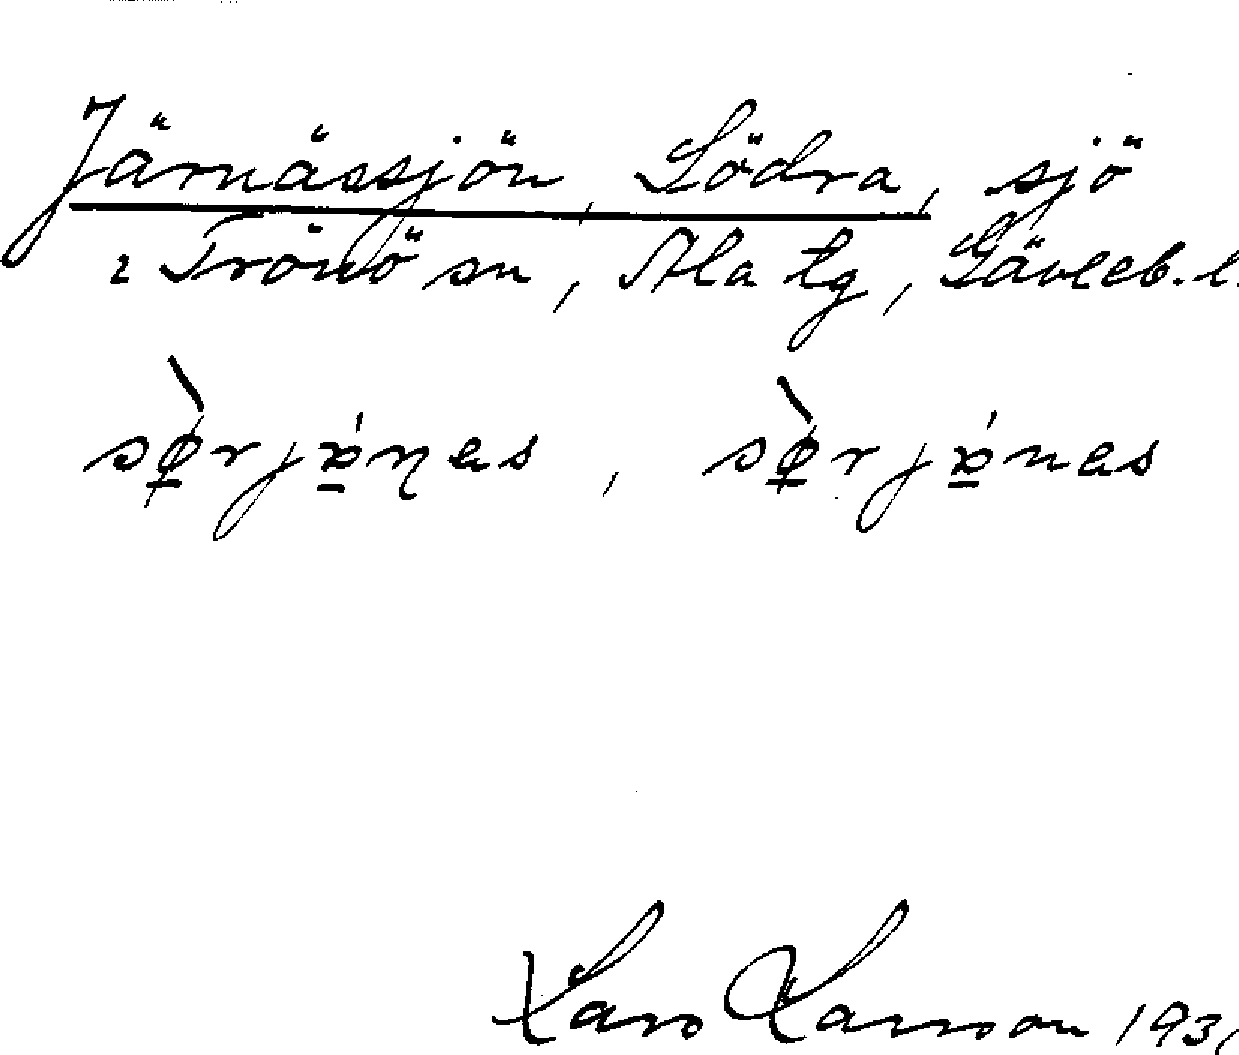 Järnässjön, Södra, sjö
i Trönö sn, Ala tg, Gävleb. l.
sø̀rjɑ́ŋas, sø̀rjɑ́nas
Lars Larsson 193